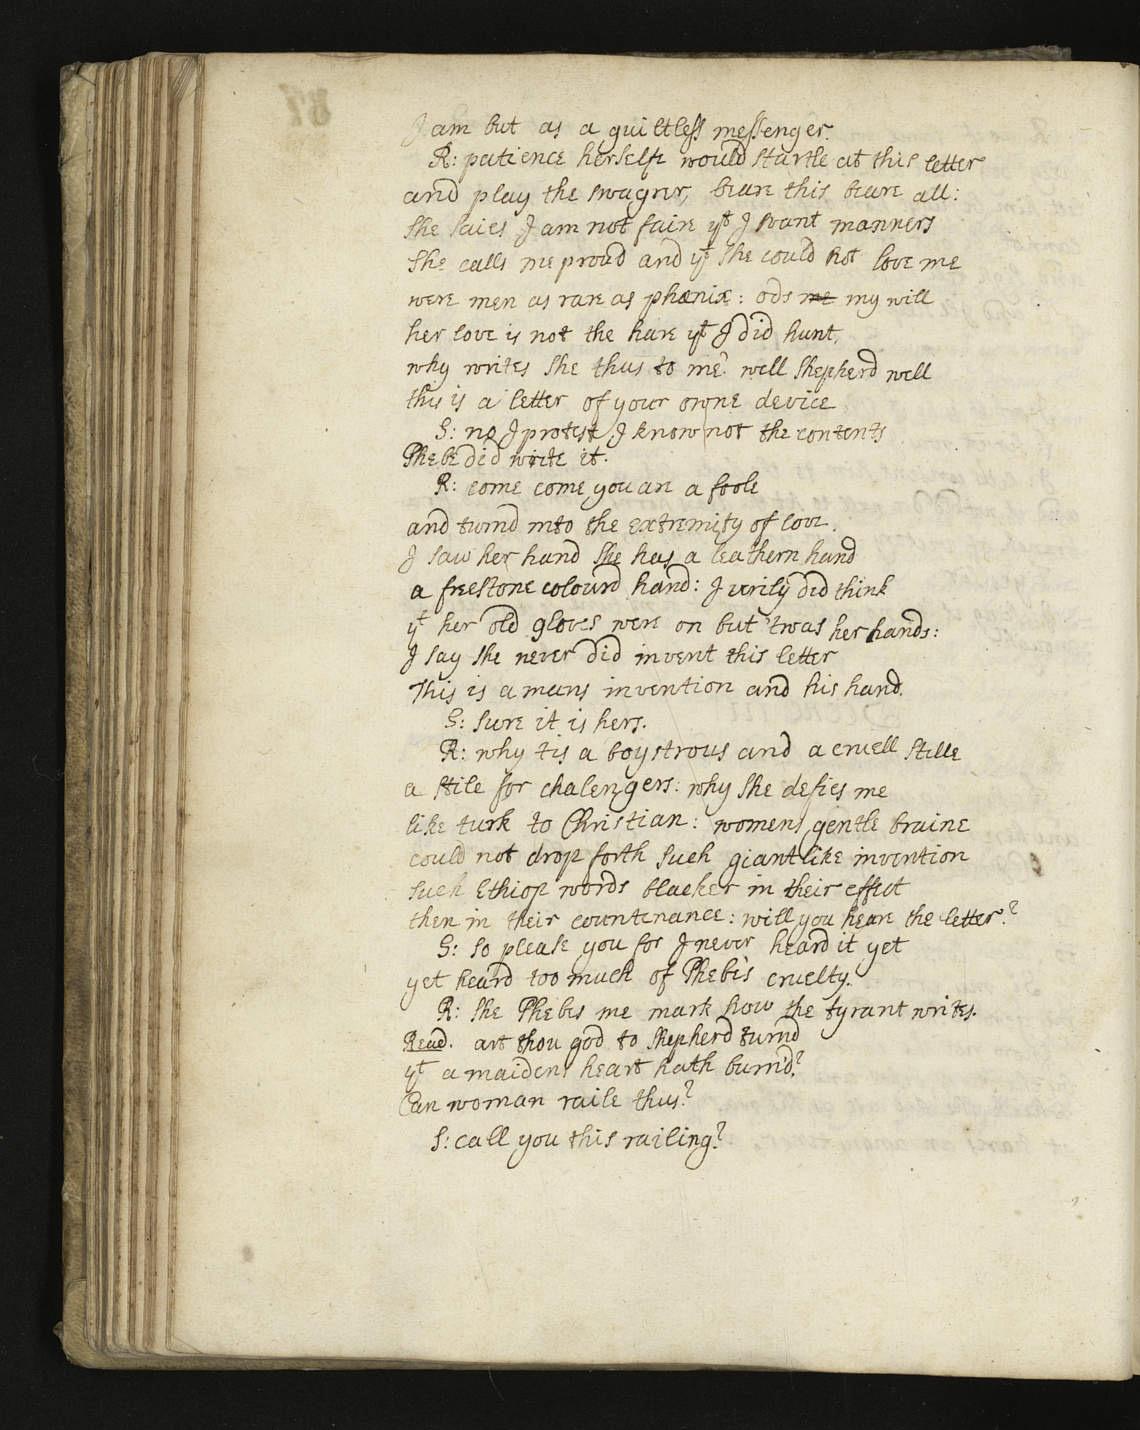 I am but as a guiltless messenger.
R: patience herselfe would startle at this letter
and play the swagrer, beare this beare all:
she saies I am not faire yt I want manners
She calls me proud and yt she could not love me
were men as rare as phœnix: ods me my will
her love is not the hare yt I did hunt,
why writes she thus to me? well shepherd well
this is a letter of your owne device
S: no I protest I know not the contents
Phebe did write it.
R: come come you are a foole
and turnd into the extremity of love.
I saw her hand she has a leathern hand
a freestone colourd hand: I verily did think
yt her old gloves were on but 'twas her hands:
I say she never did invent this letter
This is a mans invention and his hand.
S: sure it is hers.
R: why tis a boystrous and a cruell stille
a stile for chalengers: why she defies me
like turk to Christian: womens gentle braine
could not drop forth such giantlike invention
such Ethiop words blacker in their effect
then in their countenance: will you heare the letter?
S: so please you for I never heard it yet
yet heard too much of Phebe's cruelty.
R: she Phebes me mark how the tyrant writes.
Read. art thou god to shepherd turnd
yt a maidens heart hath burn'd?
Can woman raile thus?
S: call you this railing?